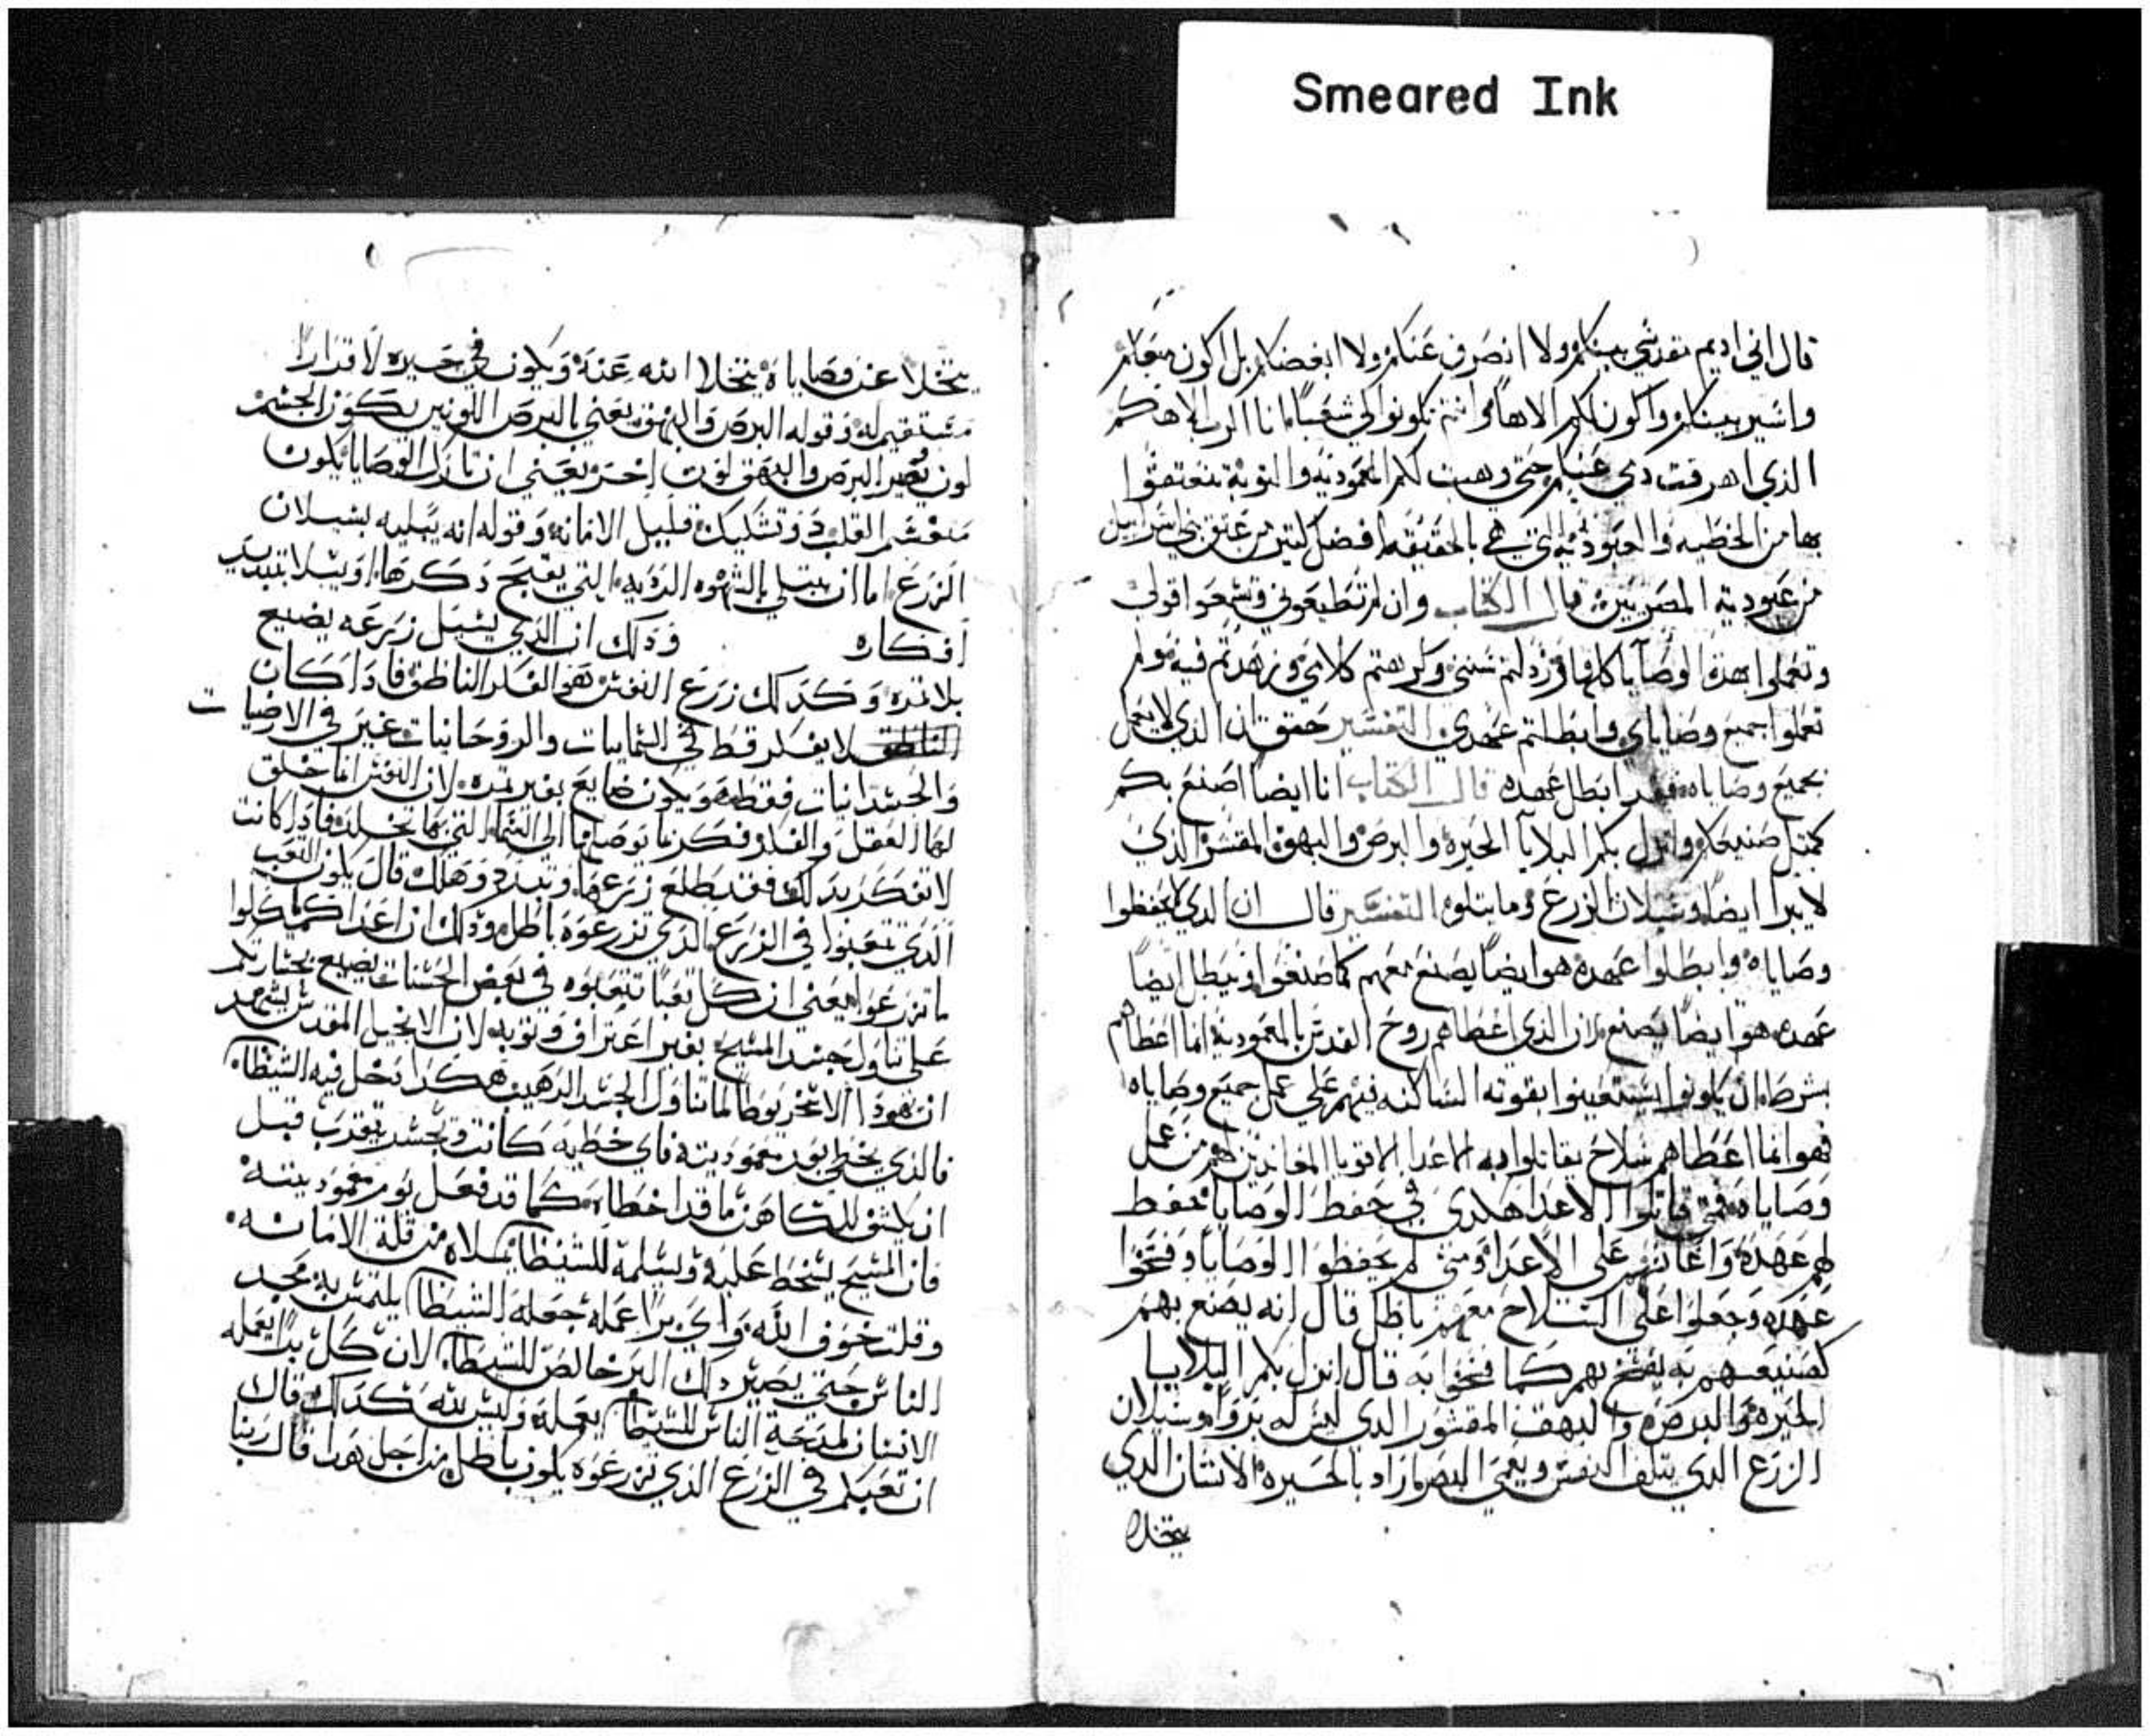 Smeared Ink
قال اني اديم مقدسي بينكم ولا انصرف عنكم ولا ابغضكم بل اكون معكم
واسير بينكم واكون لكم الاهاً وانتم تكونوا لي شعباً انا الرب الاهكم
الذي اهرقت دمي عنكم حتي وهبت لكم المعموديه والتوبة تتعتقوا
بها من الخطيه والعبوديه التي هي بالحقيقه افضل كتير من عتق بني اسراييل
من عبودية المصريين قال الكتاب وان لم تطيعوني وتسمعوا قولي
وتعملوا بهذه الوصايا كلها ورذلتم سنني وكرهتم كلامي وزهدتم فيه ولم
تعملوا جميع وصاياي وابطلتم عهدي التفسير حقق ان الذي لا يعمل
بجميع وصاياه فقد ابطل عهده قال الكتاب انا ايضا اصنع بكم
كمتل صنيعكم وانزل بكم البلايا الحيره والبرص والبهق المقشر الذي
لا يبرا ايضاً وسيلان الزرع وما يتلوه التفسير قال ان الذي لا يحفظوا
وصاياه وابطلوا عهده هو ايضاً يصنع معهم كما صنعوا ويبطل ايضاً
عهده هو ايضاً يصنع لان الذي اعطاهم روح القدس بالمعمودية انما اعطاهم
بشرط ان يكونوا يستعينوا بقوته الساكنه فيهم علي عمل جميع وصاياه
فهو انما اعطاهم سلاح يقاتلوا به الاعدا الاقويا المعاندين لهم من عمل
وصاياه فمتي قاتلوا الاعدا هكدي في حفظ الوصايا يحفظ
لهم عهده واعانهم علي الاعدا ومتي لم يحفظوا الوصايا وفسخوا
عهده وجعلوا علي السلاح معهم باطل قال انه يصنع بهم
كصنيعهم به يفسخ بهم كما فسخوا به قال انزل بكم البلايا
الحيره والبرص والبهق المقشور الدي ليس له بروا وسيلان
الزرع الدي يتلف النفس ويعمي البصر اراد بالحيره الانسان الدي
يتخلا
يتخلا عن وصاياه يتخلا الله عنه ويكون في حيره لا قرارا
مستقيم له وقوله البرص والبهق يعني بالبرص اللونين يكون الجسم
لون يصير البرص والبهق لون اخر يعني ان تارك الوصايا يكون
منقسم القلب دو تشكيك قليل الامانه وقوله انه يبليه بسيلان
الزرع اما ان يبتلي بالشهوه الرديه التي يقبح دكرها او يبلا بتبديد
افكاره وداك ان الذي يسيل زرعه يضيع
بلا تمره وكدلك زرع النفس هو الفكر الناطق فادا كان
الناطق لا يفكر قط في السماييات والروحانيات غير في الارضيات
والجسدانيات فقط فهو يكون ضايع بغير تمره لان النفس انما خلق
لها العقل والفكر وفكرها توصلها الي السما التي بها تخلد فادا كانت
لا تفكر بدلك فقد طلع زرعها وتبدد وهلك قال يكون التعب
الذي تتعبوا في الزرع الدي تزرعوه باطل ودلك ان اعداكم ياكلوا
ما تزرعوا يعني ان كل تعباً تتعبوه في بعض الحسنات يضيع بجسارتكم
علي تناول جسد المسيح بغير اعتراف وتوبه لان الانجيل المقدس يشهد
ان يهودا الاسخريوطا لما تناول الجسد الرهيب هكدا دخل فيه الشيطان
فالذي يخطي بعد معموديته فاي خطيه كانت ويجسد يتقرب قبل
ان يكشف للكاهن ما قد اخطاه كما قد فعل يوم معموديته
فان المسيح يسخط عليه ويسلمه للشيطان يملاه من قلة الامانه
وقلت خوف الله واي برا عمله جعله الشيطان يلتمس به مجد
الناس حتي يصير دلك البر خالص للشيطان لان كل برا يعمله
الانسان لمديحة الناس للشيطان يعمله وليس لله كدلك قال
ان تعبكم في الزرع الذي تزرعوه يكون باطل من اجل هدا قال ربنا